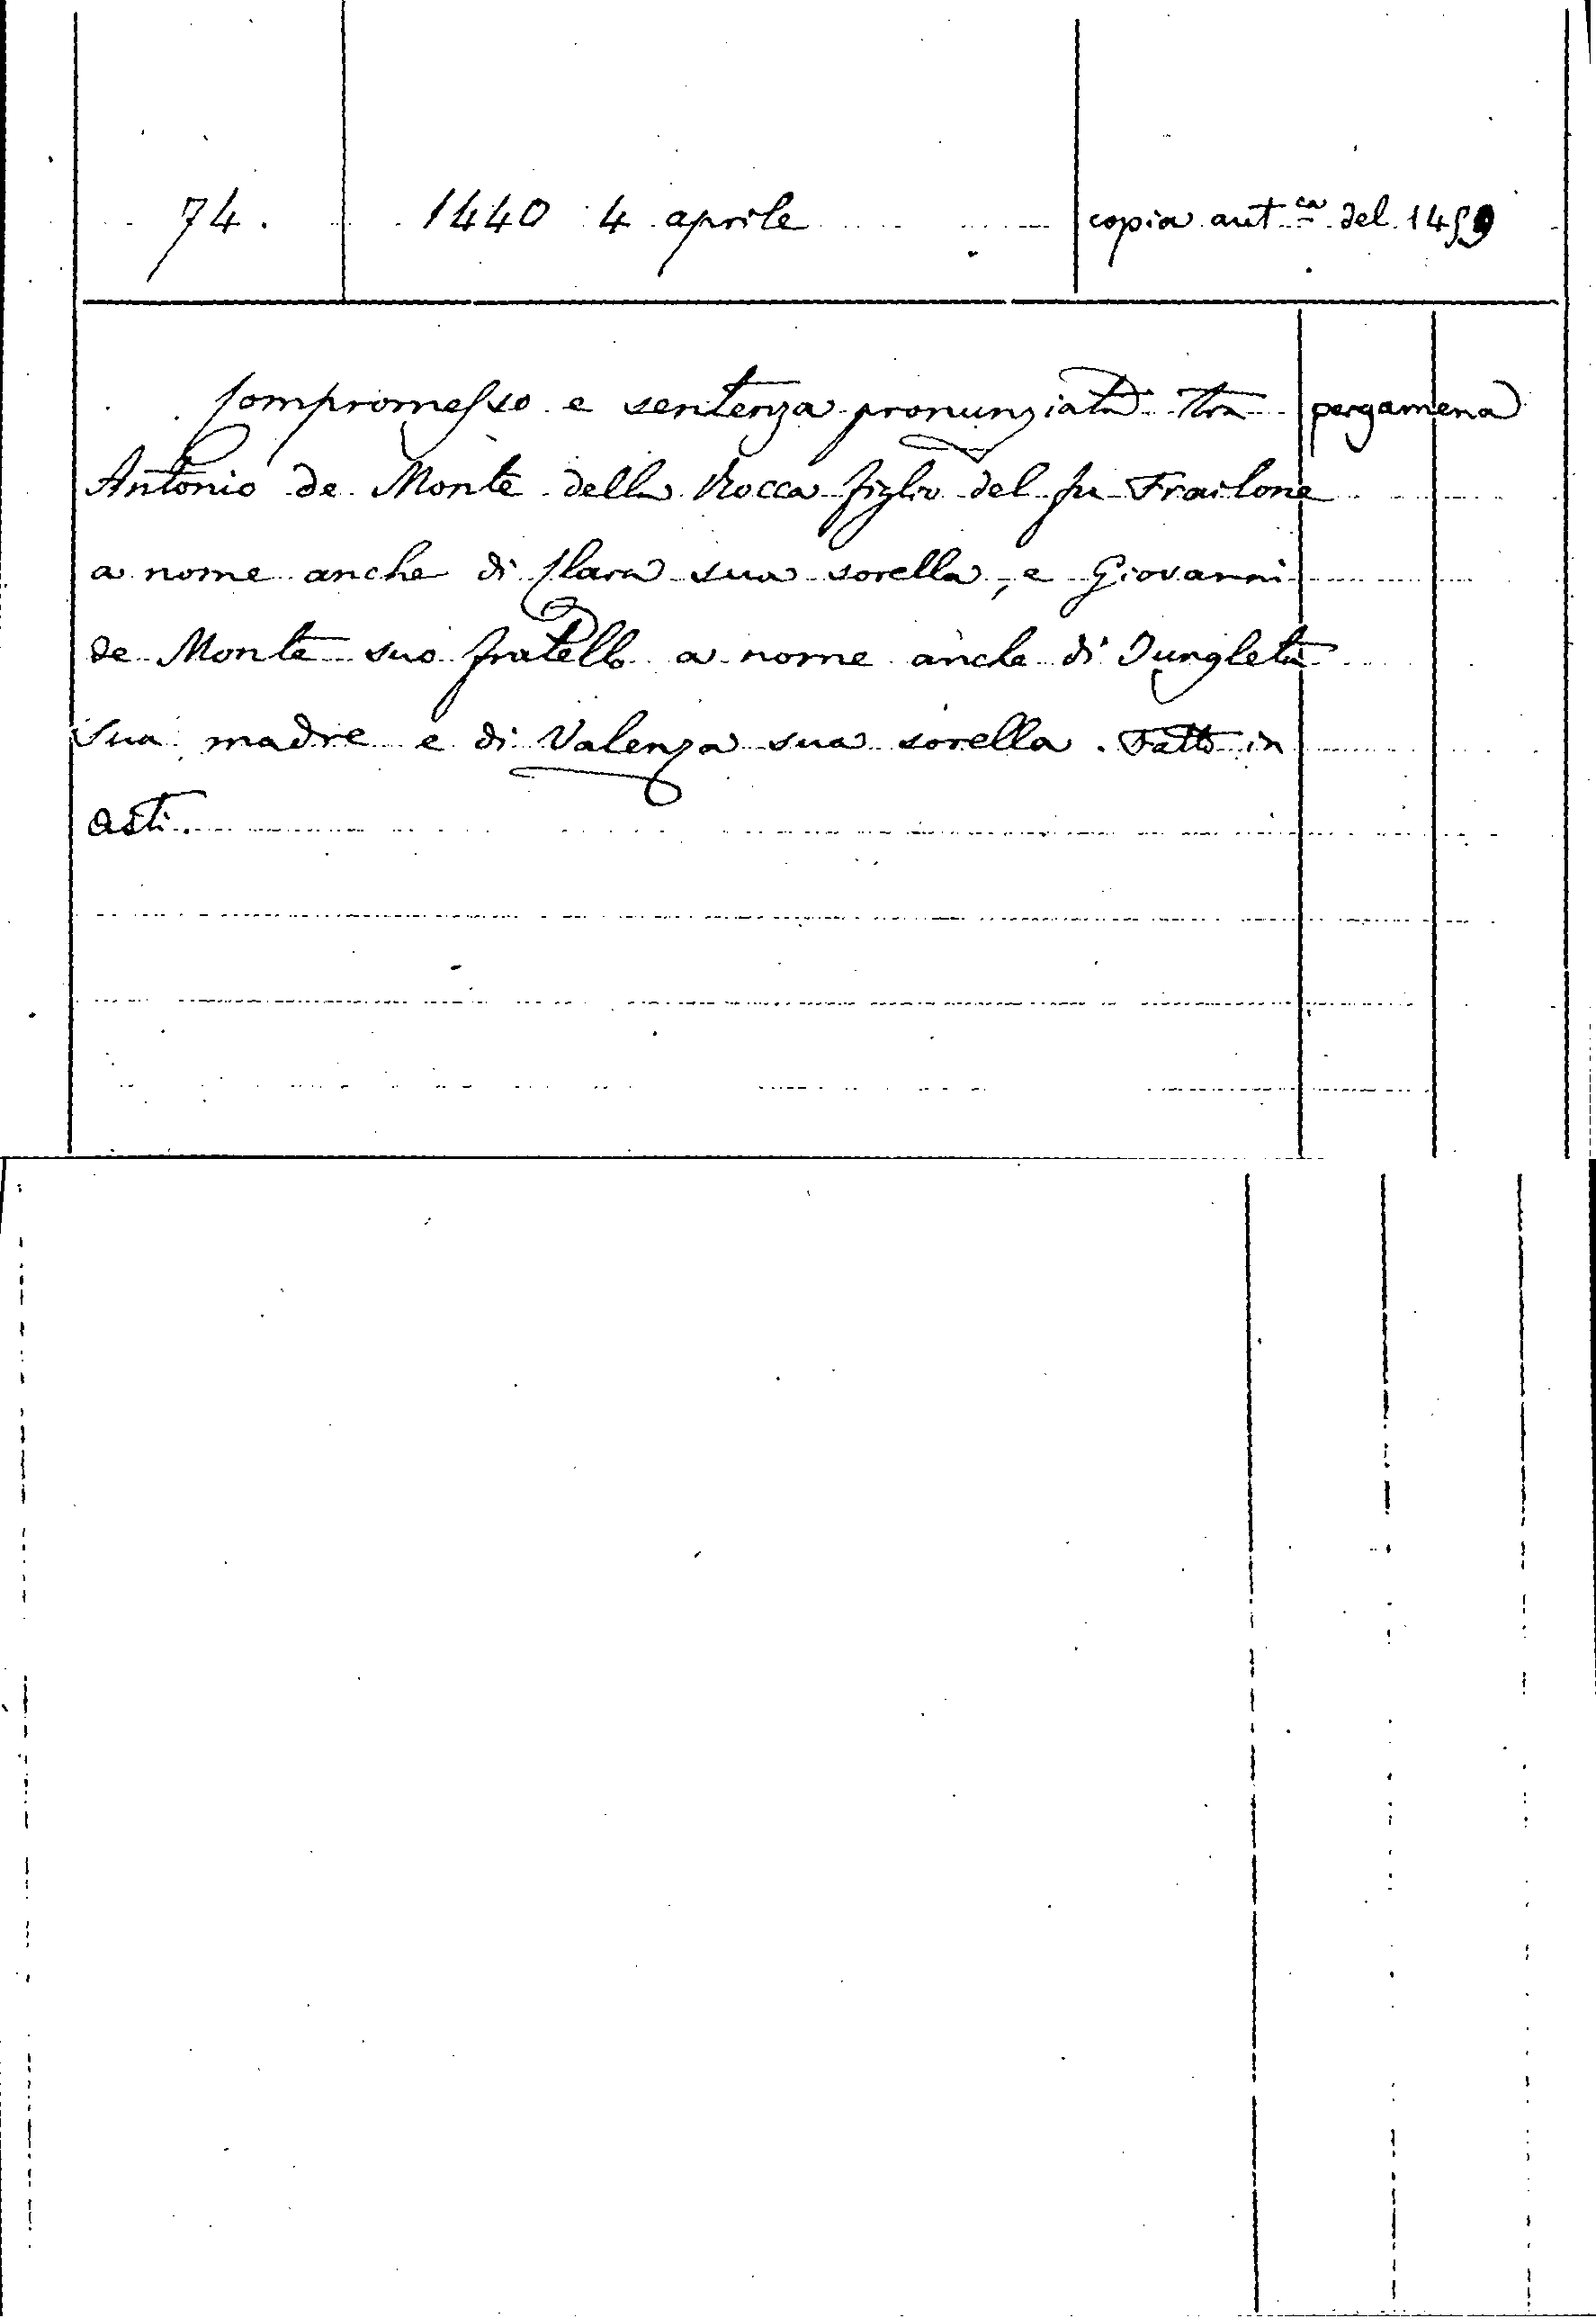 74. 1440 4 aprile copia aut.ca del 1459
Compromesso e sentenza pronunziata tra pergamena
Antonio de Monte della Rocca figlio del fu Frailone
a nome anche di Clara sua sorella, e Giovanni
de Monte suo fratello a nome anche di Jungleta
sua madre e di Valenza sua sorella. Fatto in
Asti.